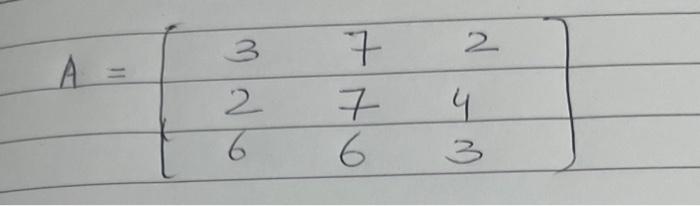 A = [ 3 7 2
2 7 4
6 6 3 ]